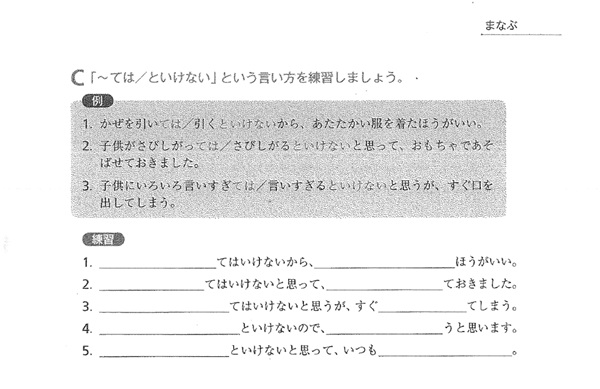 まなぶ
C「～ては／といけない」という言い方を練習しましょう。
例
1. かぜを引いては／引くといけないから、あたたかい服を着たほうがいい。
2. 子供がさびしがっては／さびしがるといけないと思って、おもちゃであそ
ばせておきました。
3. 子供にいろいろ言いすぎては／言いすぎるといけないと思うが、すぐ口を
出してしまう。
練習
1. ________________てはいけないから、____________________ほうがいい。
2. ________________てはいけないと思って、________________ておきました。
3. __________________てはいけないと思うが、すぐ____________てしまう。
4. ____________________といけないので、________________うと思います。
5. __________________といけないと思って、いつも__________________。